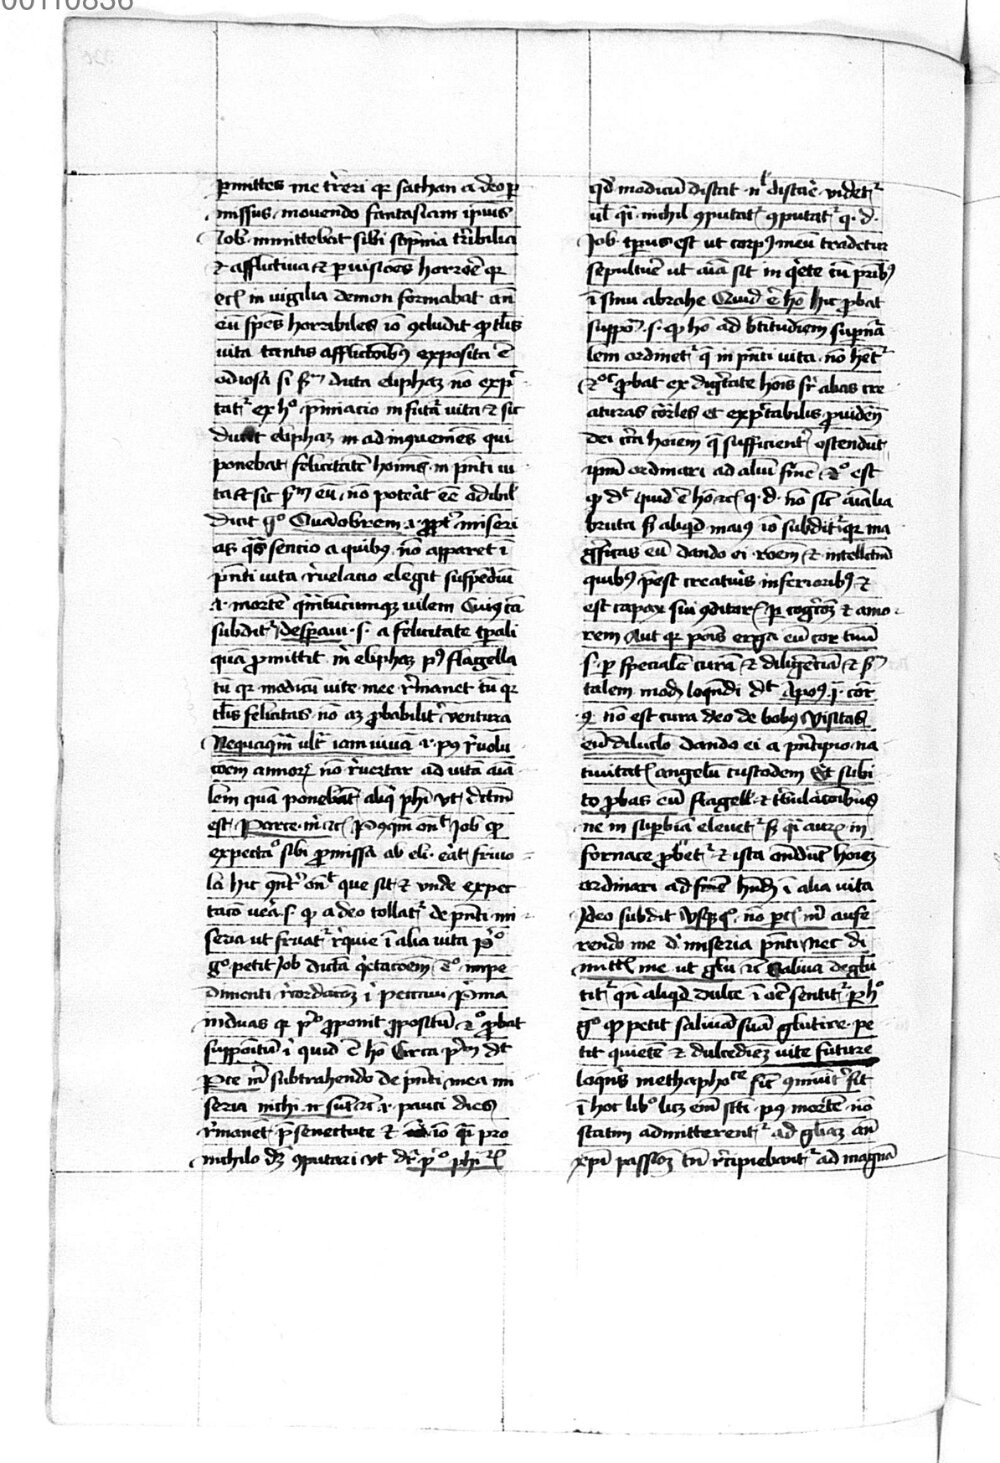 00110836
permittes me tͬreri qr sathan a deo p
missus, movendo fantasiam ipius
Iob. inmittebat sibi sompnia tͬribilia
et afflictiva et p visiões horrore qr
etc̄ in vigilia demon formabat an̄
eū spēs horribiles iō ꝯcludit ꝙ tlis
vita tantis afflictiōibꝰ exposita ē
odiosa si scdm dicta eliphaz nō exp
tatͬ ex hͦ p̄miatio in futͣ vita et sic
ducit eliphaz in ad inqueniēs qui
ponebat felicitatē hoīnis in p̄nti vi
ta et sic scdm eū, nō poteͣt eē odibil
Dicit gͦ Quāobrem .i. ꝓptͬ miseri
as qͣs sencio a quibꝰ nō apparet ī
p̄nti vita rͤvelatio elegit suspēdiū
.i. mortē qͣntucumqꝫ vilem Cuiꝰ cā
subditͬ despavi .s. a felicitate tp̄ali
quā ꝓmittit mͥ eliphaz pꝰ flagella
tū qr modicū vite mee rͤmanet tū qr
tlis felicitas nō ē ꝓbabilitͬ ventura
Nequaqͣm ultͣ iam vivā .i. pꝰ rͤvolu
cōem annorꝝ nō rͤvertar ad vitā aīa
lem quā ponebāt aliqͥ phī vt dictū
est Parce mͥ etc̄ Postqͣm ondit Iob ꝙ
expectaͦ sibi ꝓmissa ab eli. eāt frivo
la hic ꝯntͬ ondit que sit et vnde expec
tacō veͣ .s. ꝙ a deo tollatͬ de p̄nti mi
seria ut fruatͬ rͤquie ī alia vita pͥͦ
gͦ petit Iob dictā qͥetacōem 2ͦ impe
dimenti rͤcordacōꝫ ī peccavi Pͥma
in duas qr pͥͦ ꝓponit ꝓpositū 2ͦ ꝓbat
suppoitū ī quid ē hō Circa pͥm dt
Pce mͥ subtrahendo de p̄nti mea mi
seria nichi. n̄ sūt etc̄ .i. pauci dies
rͤmanēt p̄ senectute et iō qͣ pro
nichilo dꝫ ꝯputari vt drͬ pͥͦ phīͬ
qd̄ modicū distat nl̄ distare videtͬ
ul̄ qͥ nichil ꝯputatͬ ꝯputatͬ q. d.
Iob. tp̄us est ut corpꝰ meū tradetur
sepultuͤ ut aīa sit in qͥete cū pͣibꝰ
ī sinu abrahe Quid ē hō hic ꝓbat
suppoͥ .s. ꝙ hō ad btitudiēm supnā
lem ordinetͬ qͤ in p̄nti vita nō hētͬ
2ͦ ꝓbat ex digͥtate hōis sr alias cre
aturas corͣles et exp̄tabilis ꝓvidēn
dei circa hoiem qͤ sufficientͬ ostendūt
ipm̄ ordinari ad aliū finē hͦ est
ꝙ dt quid ē hō etc̄ q. d. nō sic aīalia
bruta scd aliqd̄ maiꝰ iō subditͬ qr ma
gͥficas eū dando ei rōem et intellectū
quibꝰ p̄est creatuͥs inferioribꝰ et
est capax sui ꝯditorͥ p cogͥcōꝫ et amo
rem Aut qr ponis erga eū cor tuū
.s. p specialē curā et diligētiā et scdm
talem modū loqn̄di dt Apoꝰ .j. cor
.9. nō est cura deo de bobꝰ Visitas
eū diluclo dando ei a pͥncipio na
tivitatis angelū custodem Et subi
to ꝓbas eū flagell et tͥbulacōibus
ne in supbiā elevetͬ scd qͥ aurū in
fornace ꝓbetͬ et ista ondūt hoieꝫ
ordinari ad finē hn̄dū ī alia vita
Ideo subdit Usqꝫqͦ nō pcis mͥ aufe
rendo me d̓ miseria p̄nti nec di
mittis me ut glu. etc̄ Saliva deglu
titͬ qn̄ aliqd̄ dulce ī ore sentitͬ P hͦ
gͦ ꝙ petit salivā suā glutire pe
tit quietē et dulcedieꝫ vite future
loquēs methaphoͬce sic ꝯmūitͬ fit
ī hoc libͦ licꝫ em̄ scti pꝰ mortē nō
statim admitterentͬ ad glͣiaꝫ an̄
xpī passiōꝫ tn̄ rͤcipiebantͬ ad magnā